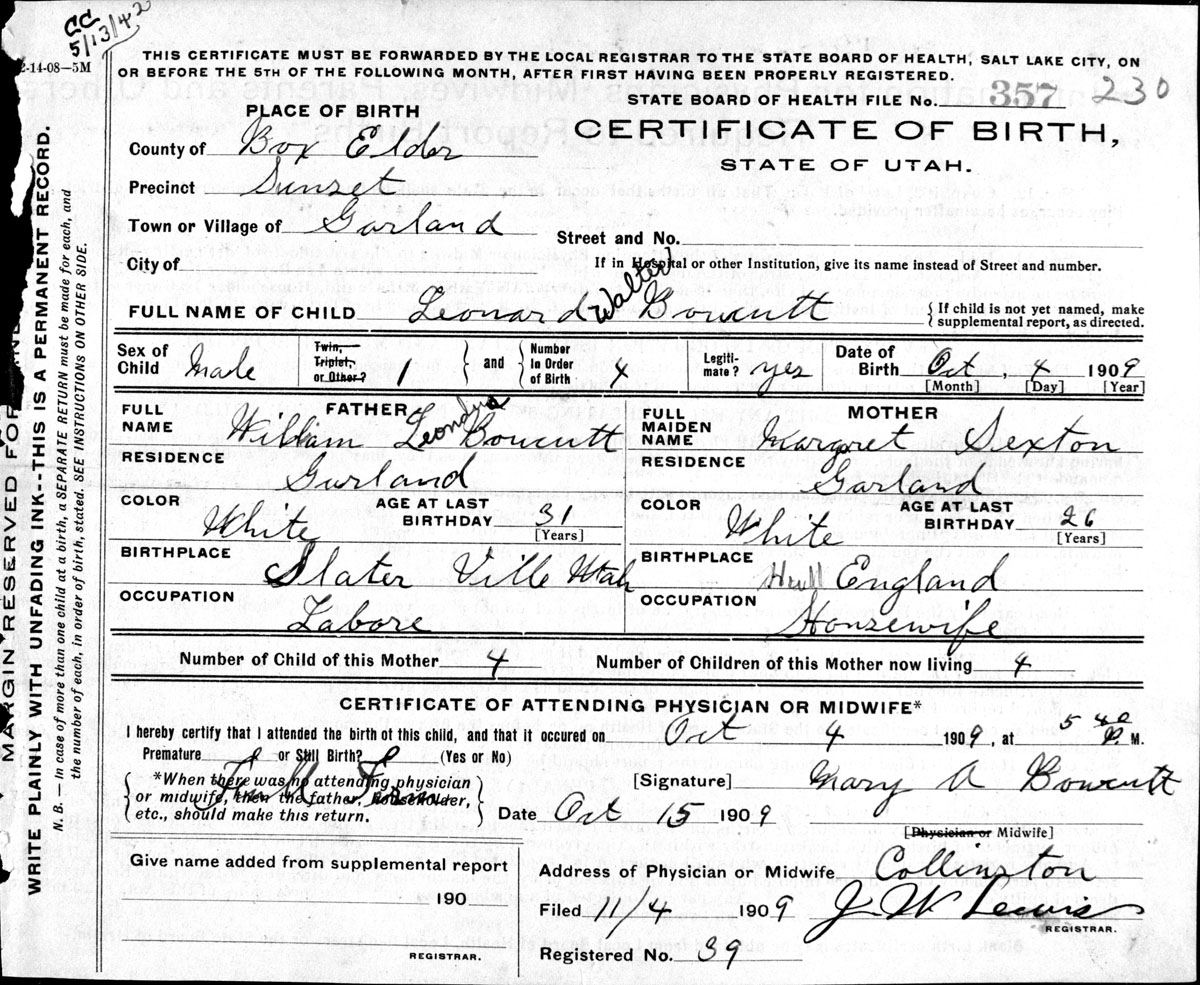 CC
5/13/42
2-14-08—5M
THIS CERTIFICATE MUST BE FORWARDED BY THE LOCAL REGISTRAR TO THE STATE BOARD OF HEALTH, SALT LAKE CITY, ON
OR BEFORE THE 5TH OF THE FOLLOWING MONTH, AFTER FIRST HAVING BEEN PROPERLY REGISTERED.
STATE BOARD OF HEALTH FILE No. 357 230
PLACE OF BIRTH
CERTIFICATE OF BIRTH,
STATE OF UTAH.
County of Box Elder
Precinct Sunset
Town or Village of Garland
Street and No.
City of
If in Hospital or other Institution, give its name instead of Street and number.
FULL NAME OF CHILD Leonard Walter Bowcutt
{ If child is not yet named, make
supplemental report, as directed.
Sex of Child Male
Twin, Triplet, or Other? 1 } and { Number In Order of Birth 4
Legiti-mate? yes
Date of Birth Oct 4 1909
[Month] [Day] [Year]
FATHER
FULL NAME William Leondra Bowcutt
RESIDENCE Garland
COLOR White
AGE AT LAST BIRTHDAY 31
[Years]
BIRTHPLACE Slater Ville Utah
OCCUPATION Labore
MOTHER
FULL MAIDEN NAME Margret Sexton
RESIDENCE Garland
COLOR White
AGE AT LAST BIRTHDAY 26
[Years]
BIRTHPLACE Hull England
OCCUPATION Housewife
Number of Child of this Mother 4
Number of Children of this Mother now living 4
CERTIFICATE OF ATTENDING PHYSICIAN OR MIDWIFE*
I hereby certify that I attended the birth of this child, and that it occured on Oct 4 1909, at 5 40 P. M.
Premature or Still Birth? (Yes or No)
*When there was no attending physician
or midwife, then the father, householder,
etc., should make this return.
[Signature] Mary A Bowcutt
Date Oct 15 1909
[Physician or Midwife]
Give name added from supplemental report
190
REGISTRAR.
Address of Physician or Midwife Collinston
Filed 11/4 1909 J W Lewis
REGISTRAR.
Registered No. 39
MARGIN RESERVED FOR
WRITE PLAINLY WITH UNFADING INK--THIS IS A PERMANENT RECORD.
N. B. — In case of more than one child at a birth, a SEPARATE RETURN must be made for each, and
the number of each, in order of birth, stated. SEE INSTRUCTIONS ON OTHER SIDE.